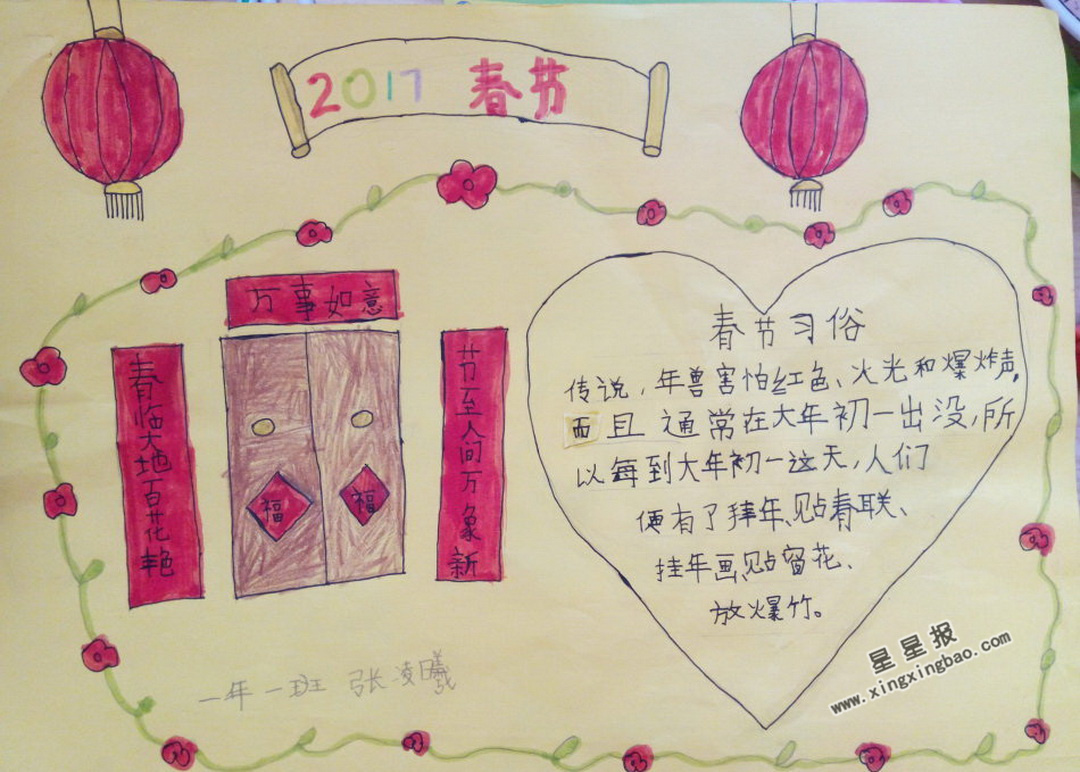 2017 春节
万事如意
春临大地百花艳
节至人间万象新
福
福
春节习俗
传说，年兽害怕红色、火光和爆炸声，
而且通常在大年初一出没，所
以每到大年初一这天，人们
便有了拜年、贴春联、
挂年画、贴窗花、
放爆竹。
一年一班 张凌曦
星星报
www.xingxingbao.com